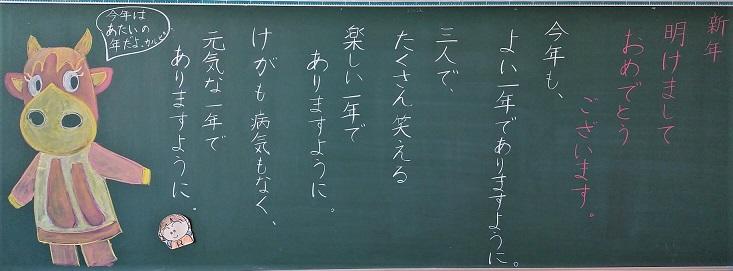 新年
明けまして
おめでとう
ございます。
今年も、
よい一年でありますように。
三人で、
たくさん笑える
楽しい一年で
ありますように。
けがも病気もなく、
元気な一年で
ありますように。
今年は
あたいの
年だよ。